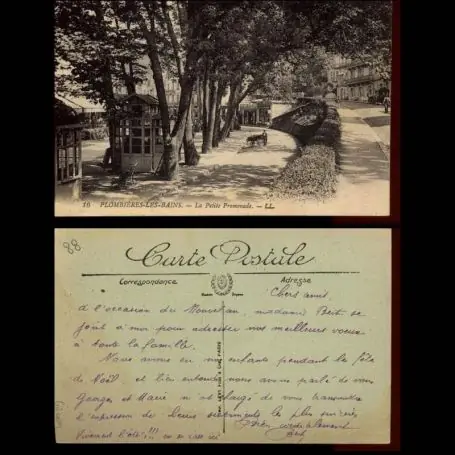 16 PLOMBIÈRES-LES-BAINS. - La Petite Promenade. - LL.
88
Carte Postale
Correspondance
Adresse
Chers amis,
à l'occasion du Nouvel an, madame se
joint à moi pour adresser nos meilleurs voeux
à toute la famille.
Nous avons eu nos enfants pendant la fête
de Noël, et bien entendu nous avons parlé de vous
Georges et Marie m'ont chargé de vous transmettre
l'expression de leurs sentiments les plus sincères
Bien cordialement
Vivement l'été!!! on en ici